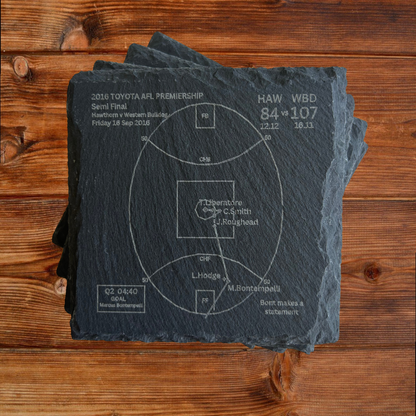 2016 TOYOTA AFL PREMIERSHIP
Semi Final
Hawthorn v Western Bulldog
Friday 16 Sep 2016
HAW WBD
84 vs 107
12.12 16.11
FB
50 50
CHB
T.Liberatore
C.Smith
J.Roughead
CHF
L.Hodge
50 50
M.Bontempelli
FF
Q2 04:40
GOAL
Marcus Bontempelli
Bont makes a
statement